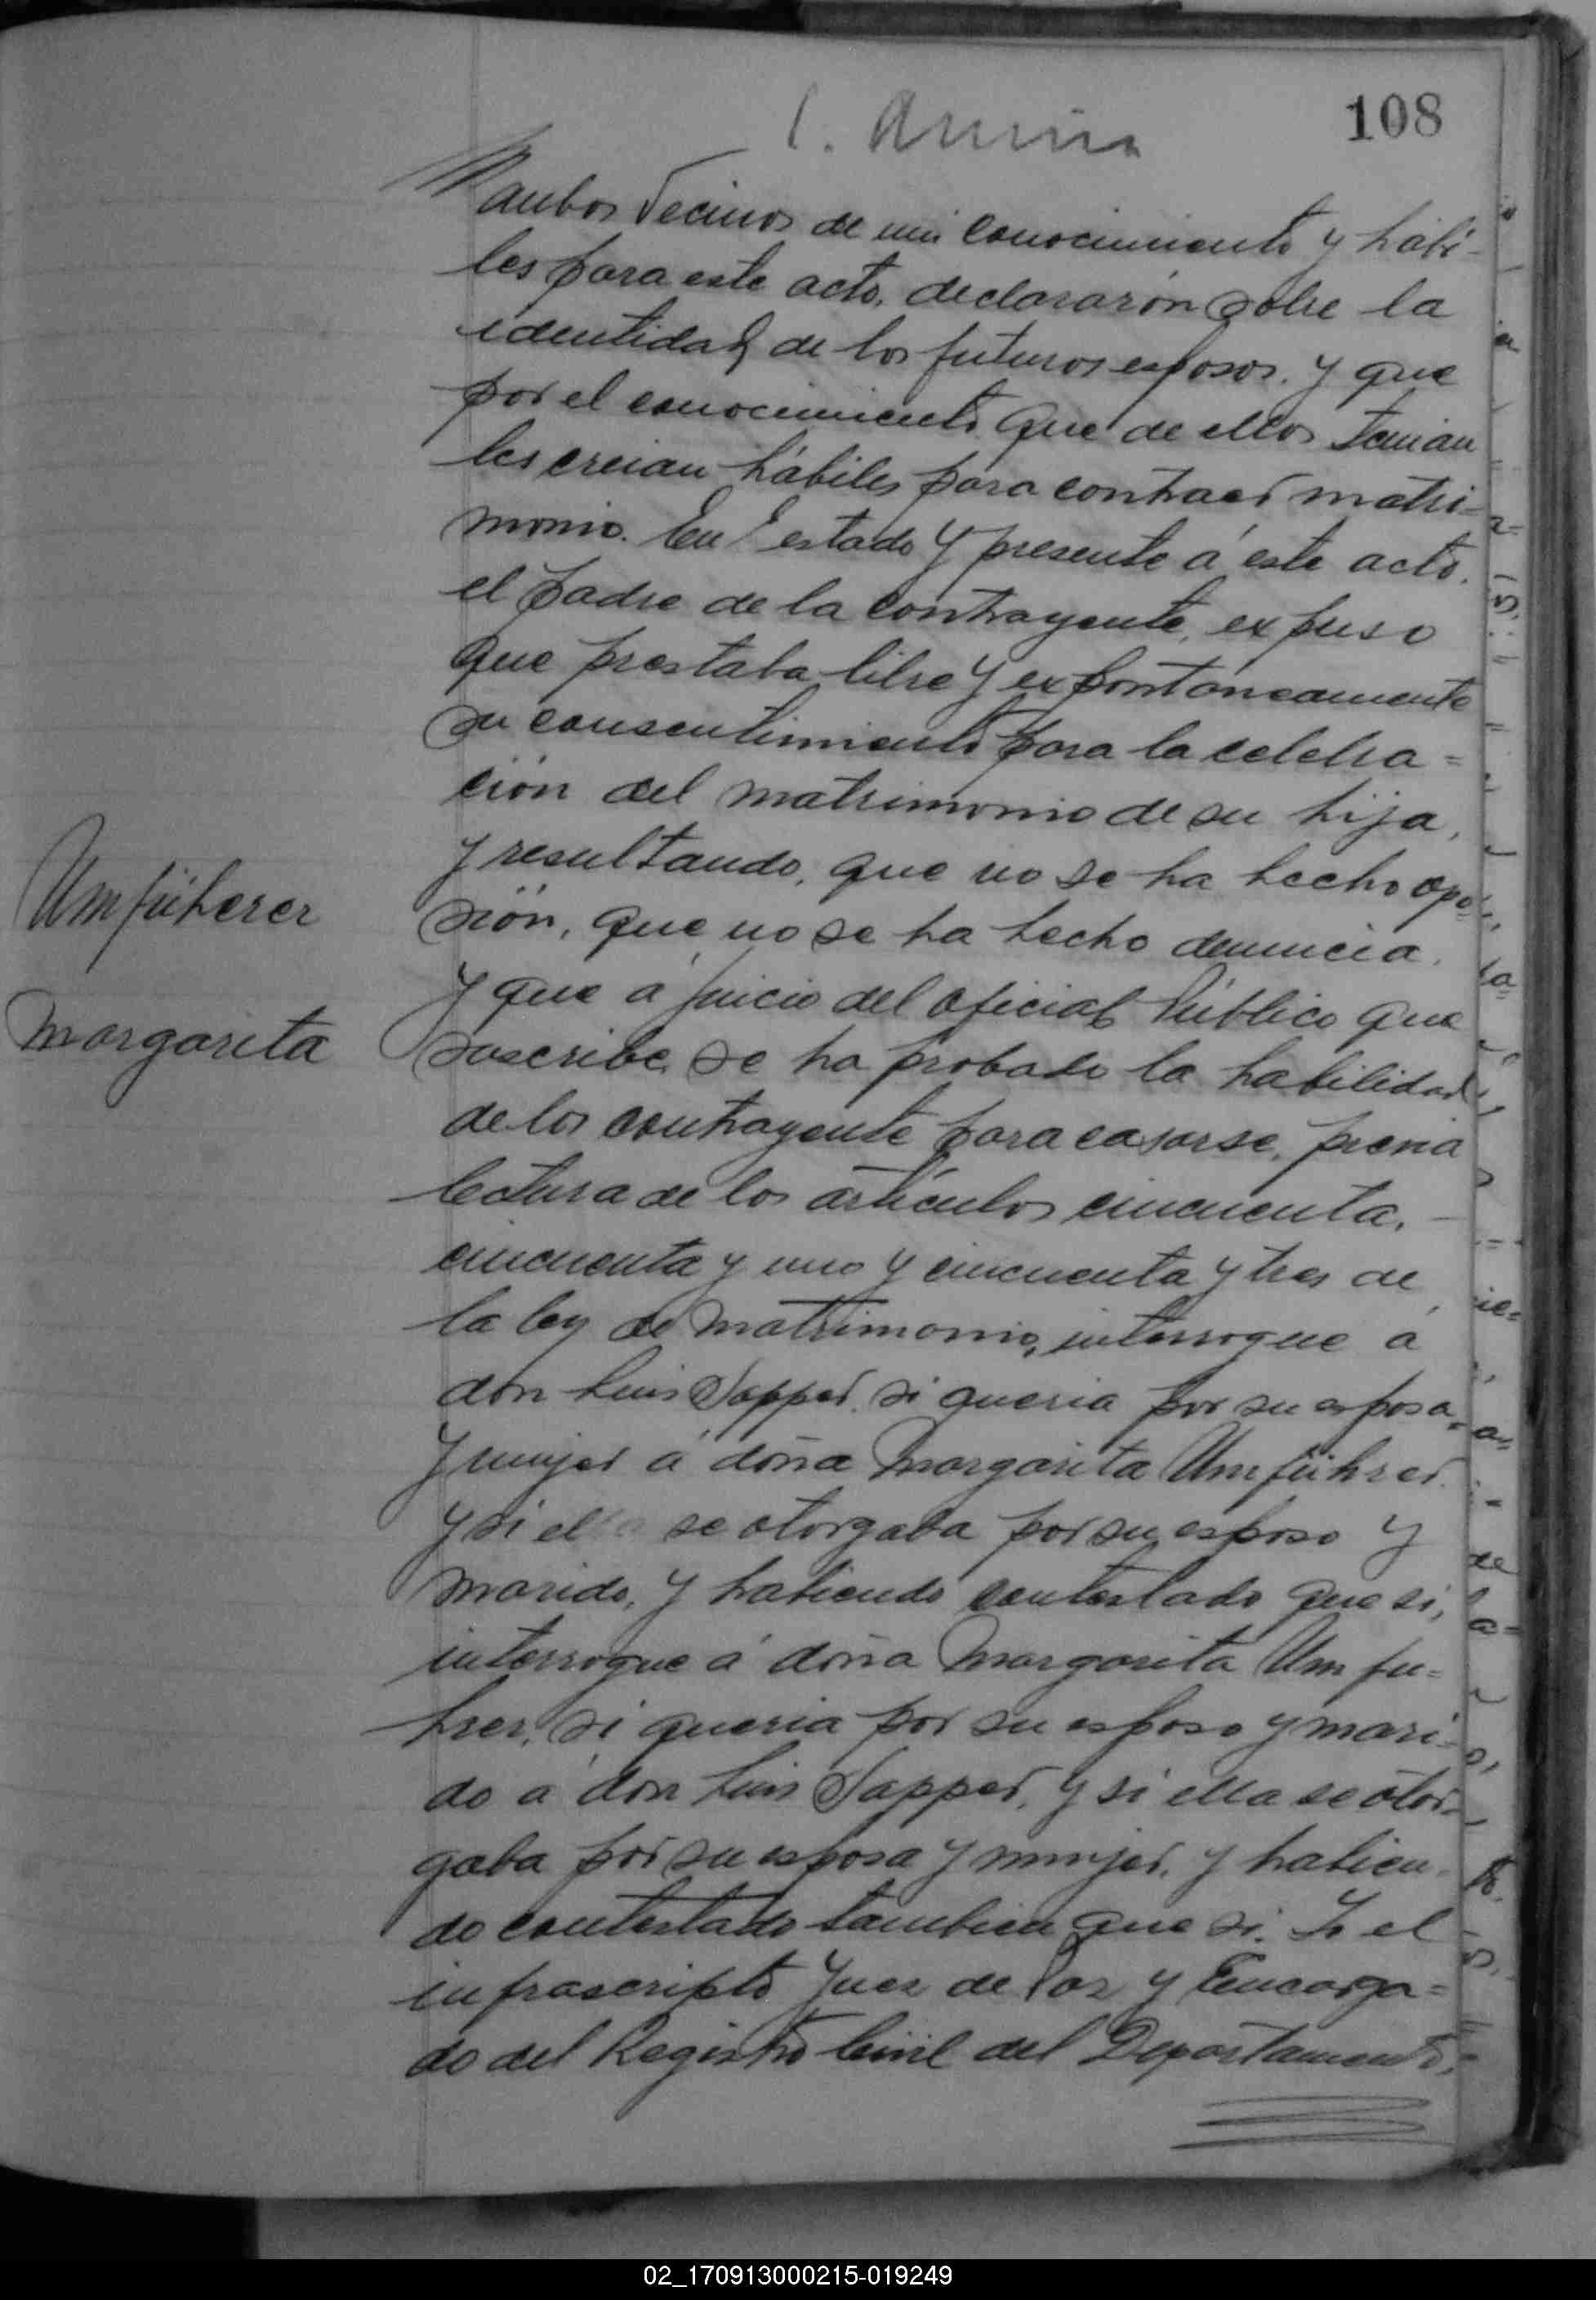 108
ambos vecinos de mi conocimiento y hábi-
les para este acto, declararón sobre la
identidad de los futuros esposos, y que
por el conocimiento que de ellos tenian
les creian hábiles para contraer matri-
monio. En estado y presente á este acto,
el padre de la contrayente, expuso
que prestaba libre y expontáneamente
su consentimiento para la celebra=
ción del matrimonio de su hija,
y resultando, que no se ha hecho opo-
sión, que no se ha hecho denuncia,
Umfüherer
y que á juicio del oficial Público que
Margarita
suscribe, se ha probado la habilidad
de los contrayente para casarse, previa
lectura de los artículos cincuenta,
cincuenta y uno y cincuenta y tres de
la ley de matrimonio, interrogue á
don Luis Sapper, si queria por su esposa
y mujer á doña Margarita Umführer
y si el se otorgaba por su esposo y
marido, y habiendo contestado que si,
interrogue á doña Margarita Umfu=
hrer, si queria por su esposo y mari-
do á don Luis Sapper, y si ella se otor-
gaba por su esposa y mujer, y habien-
do contestado tambien que si. Yo el
infrascripto Juez de Paz y Encarga=
do del Registro Civil del Departamento,
02_170913000215-019249